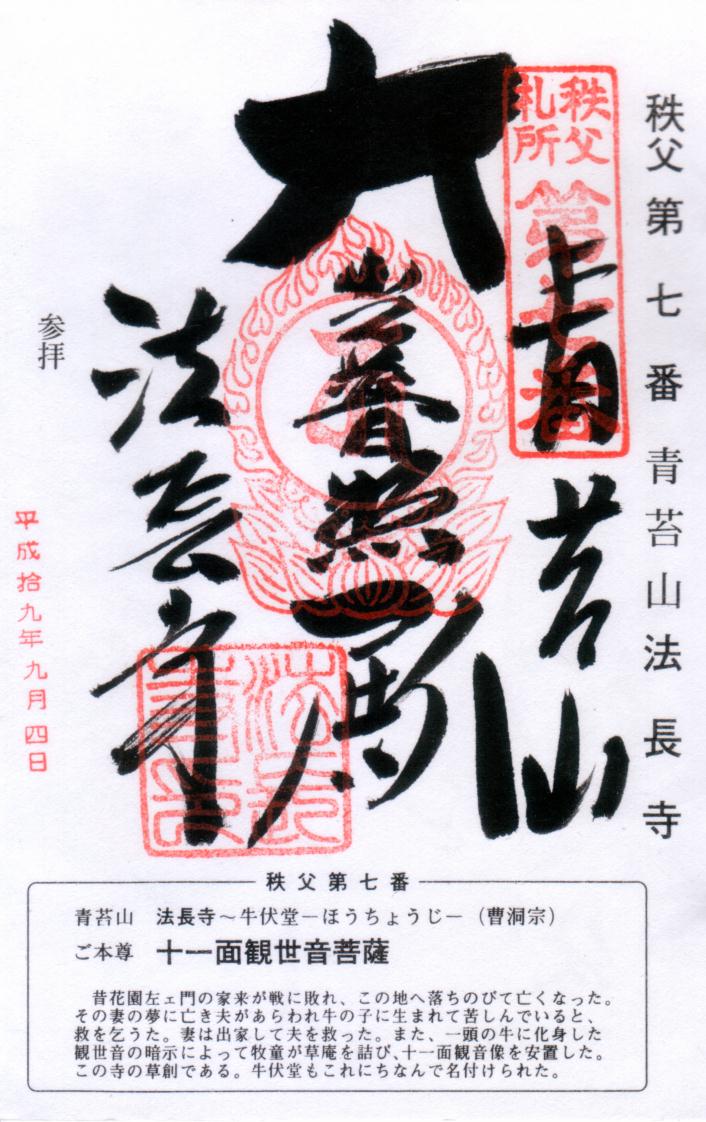 秩父第七番 青苔山法長寺
秩父
札所
第七番
青苔山
大
法長寺
参拝
平成拾九年九月四日
秩父第七番
青苔山 法長寺～牛伏堂－ほうちょうじ－（曹洞宗）
ご本尊 十一面観世音菩薩
昔花園左ェ門の家来が戦に敗れ、この地へ落ちのびて亡くなった。
その妻の夢に亡き夫があらわれ牛の子に生まれて苦しんでいると、
救を乞うた。妻は出家して夫を救った。また、一頭の牛に化身した
観世音の暗示によって牧童が草庵を詰び、十一面観音像を安置した。
この寺の草創である。牛伏堂もこれにちなんで名付けられた。